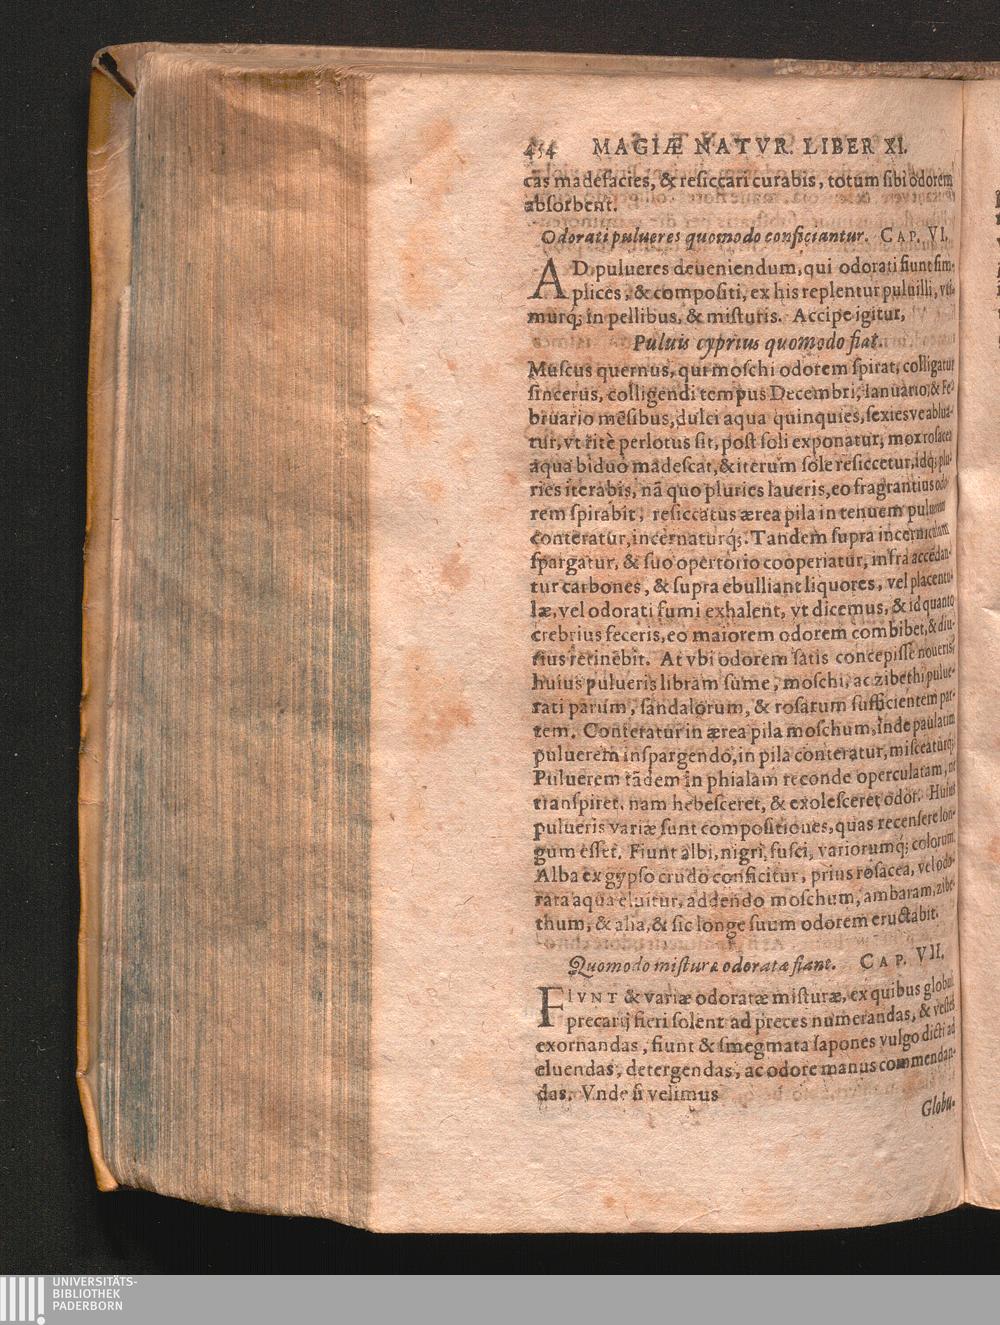 454 MAGIÆ NATVR. LIBER XI.
cas madefacies, & resiccari curabis, totum sibi odorem
absorbent.
Odorati pulueres quomodo conficiantur. CAP. VI.
AD pulueres deueniendum, qui odorati fiunt sim-
plices, & compositi, ex his replentur puluilli, vti-
murq; in pellibus, & misturis. Accipe igitur,
Puluis cyprius quomodo fiat.
Muscus quernus, qui moschi odorem spirat, colligatur
sincerus, colligendi tempus Decembri, Ianuario, & Fe-
bruario mēsibus, dulci aqua quinquies, sexiesve ablua-
tur, vt ritè perlotus sit, post soli exponatur, mox rosacea
aqua biduò madescat, & iterum sole resiccetur, idq; plu-
ries iterabis, nā quo pluries laueris, eo fragrantius odo-
rem spirabit, resiccatus ærea pila in tenuem puluerem
conteratur, incernaturq́;. Tandem supra incerniculum
spargatur, & suo opertorio cooperiatur, infra accēdan-
tur carbones, & supra ebulliant liquores, vel placentu-
læ, vel odorati fumi exhalent, vt dicemus, & id quanto
crebrius feceris, eo maiorem odorem combibet, & diu-
tius retinebit. At vbi odorem satis concepisse noueris,
huius pulueris libram sume, moschi, ac zibethi pulue-
rati parum, sandalorum, & rosarum sufficientem par-
tem. Conteratur in ærea pila moschum, inde paulatim
puluerem inspargendo, in pila conteratur, misceaturq;
Puluerem tādem in phialam reconde operculatam, ne
transpiret. nam hebesceret, & exolesceret odor. Huius
pulueris variæ sunt compositiones, quas recensere lon-
gum esset. Fiunt albi, nigri, fusci, variorumq́; colorum.
Alba ex gypso crudo conficitur, prius rosacea, vel odo-
rata aqua eluitur, addendo moschum, ambaram, zibe-
thum, & alia, & sic longe suum odorem eructabit.
Quomodo misturæ odoratæ fiant. CAP. VII.
FIVNT & variæ odoratæ misturæ, ex quibus globuli
precarij fieri solent ad preces numerandas, & vestes
exornandas, fiunt & smegmata sapones vulgo dicti ad
eluendas, detergendas, ac odore manus commendan-
das. Vnde si velimus
Globu-
UNIVERSITÄTS-
BIBLIOTHEK
PADERBORN